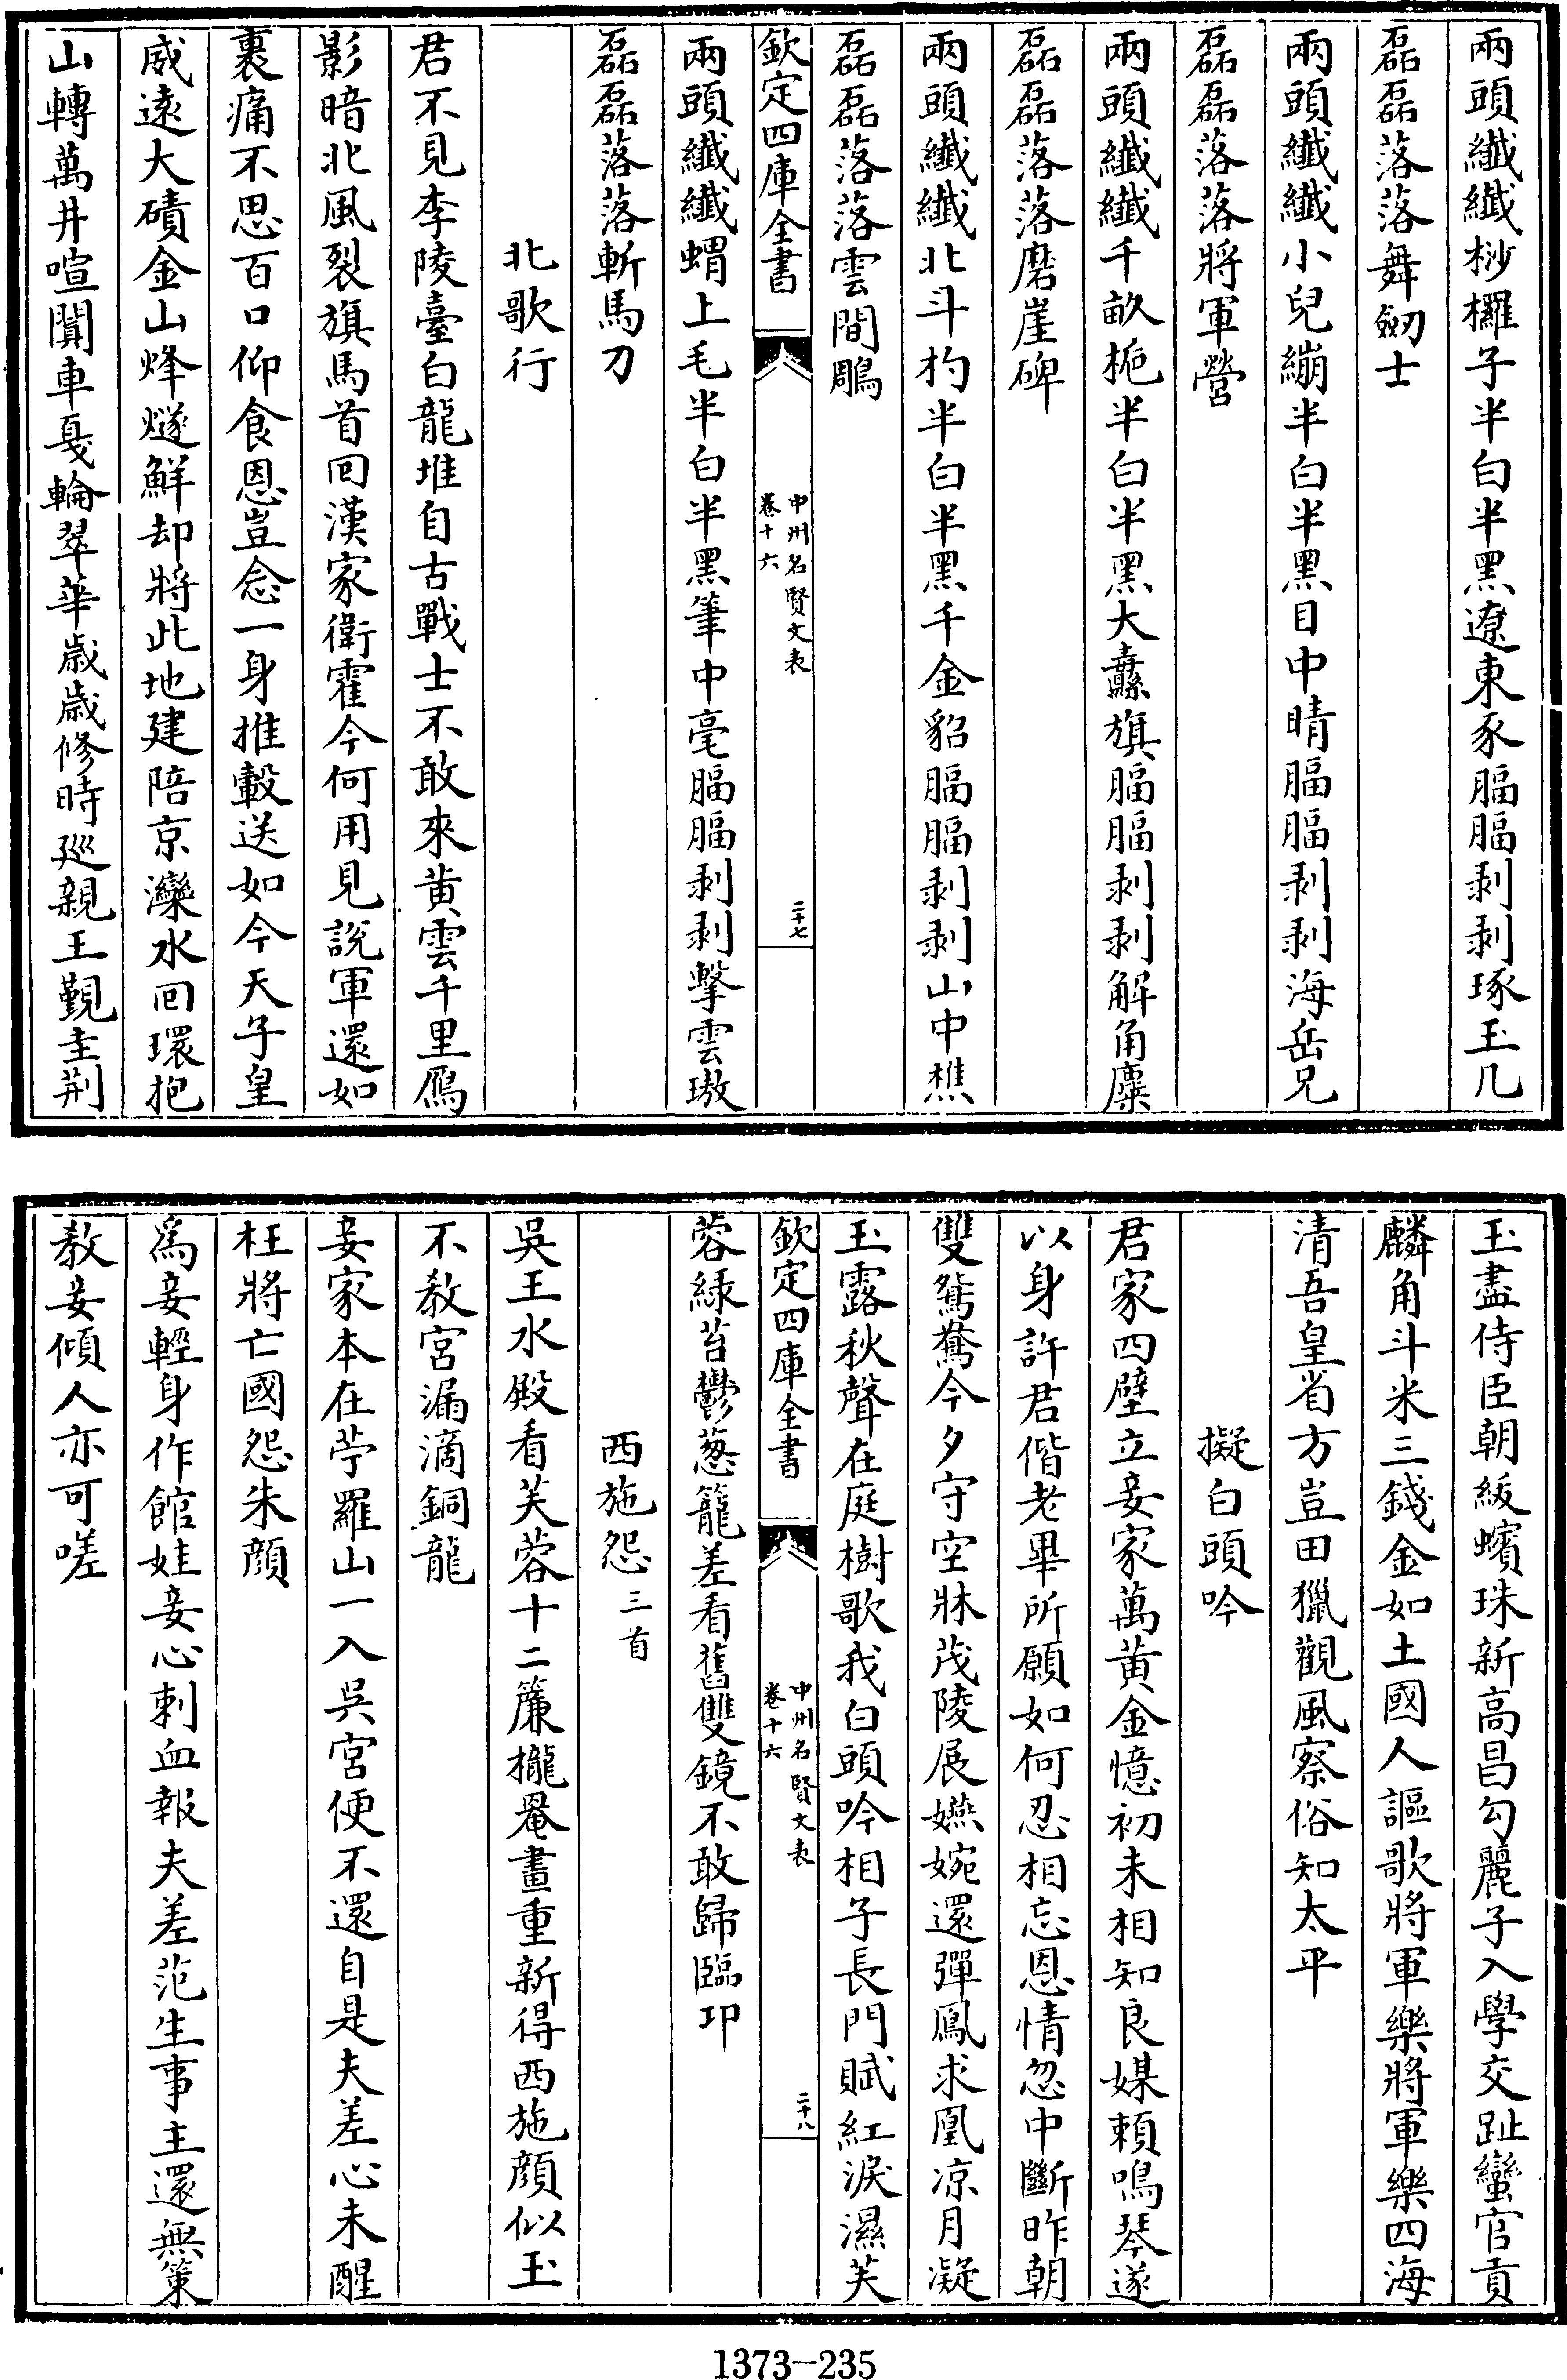 兩頭纖纖桫欏子半白半黑遼東豕腷腷剥剥琢玉几
磊磊落落舞劒士
兩頭纖纖小兒繃半白半黑目中睛腷腷剥剥海岳兄
磊磊落落將軍營
兩頭纖纖千畝梔半白半黑大纛旗腷腷剥剥解角麋
磊磊落落磨崖碑
兩頭纖纖北斗杓半白半黑千金貂腷腷剥剥山中樵
磊磊落落雲間鵰
欽定四庫全書
中州名賢文表
卷十六
二十七
兩頭纖纖蝟上毛半白半黑筆中毫腷腷剥剥擊雲璈
磊磊落落斬馬刀
北歌行
君不見李陵臺白龍堆自古戰士不敢來黄雲千里鴈
影暗北風裂旗馬首回漢家衛霍今何用見說軍還如
裹痛不思百口仰食恩豈念一身推轂送如今天子皇
威遠大磧金山烽燧鮮却將此地建陪京灤水回環抱
山轉萬井喧闐車戞輪翠華歲歲修時廵親王覲圭荆
玉盡侍臣朝紱蠙珠新高昌勾麗子入學交趾蠻官貢
麟角斗米三錢金如土國人謳歌將軍樂將軍樂四海
清吾皇省方豈田獵觀風察俗知太平
擬白頭吟
君家四壁立妾家萬黄金憶初未相知良媒頼鳴琴遂
以身許君偕老畢所願如何忍相忘恩情忽中斷昨朝
雙鴛鴦今夕守空牀茂陵展嬿婉還彈鳳求凰凉月凝
玉露秋聲在庭樹歌我白頭吟相子長門賦紅淚濕芙
欽定四庫全書
中州名賢文表
卷十六
二十八
蓉緑苔鬱葱籠差看舊雙鏡不敢歸臨卭
西施怨三首
吳王水殿看芙蓉十二簾櫳罨畫重新得西施顔似玉
不教宮漏滴銅龍
妾家本在苧羅山一入吳宮便不還自是夫差心未醒
枉將亡國怨朱顔
爲妾輕身作館娃妾心刺血報夫差范生事主還無策
教妾傾人亦可嗟
1373-235